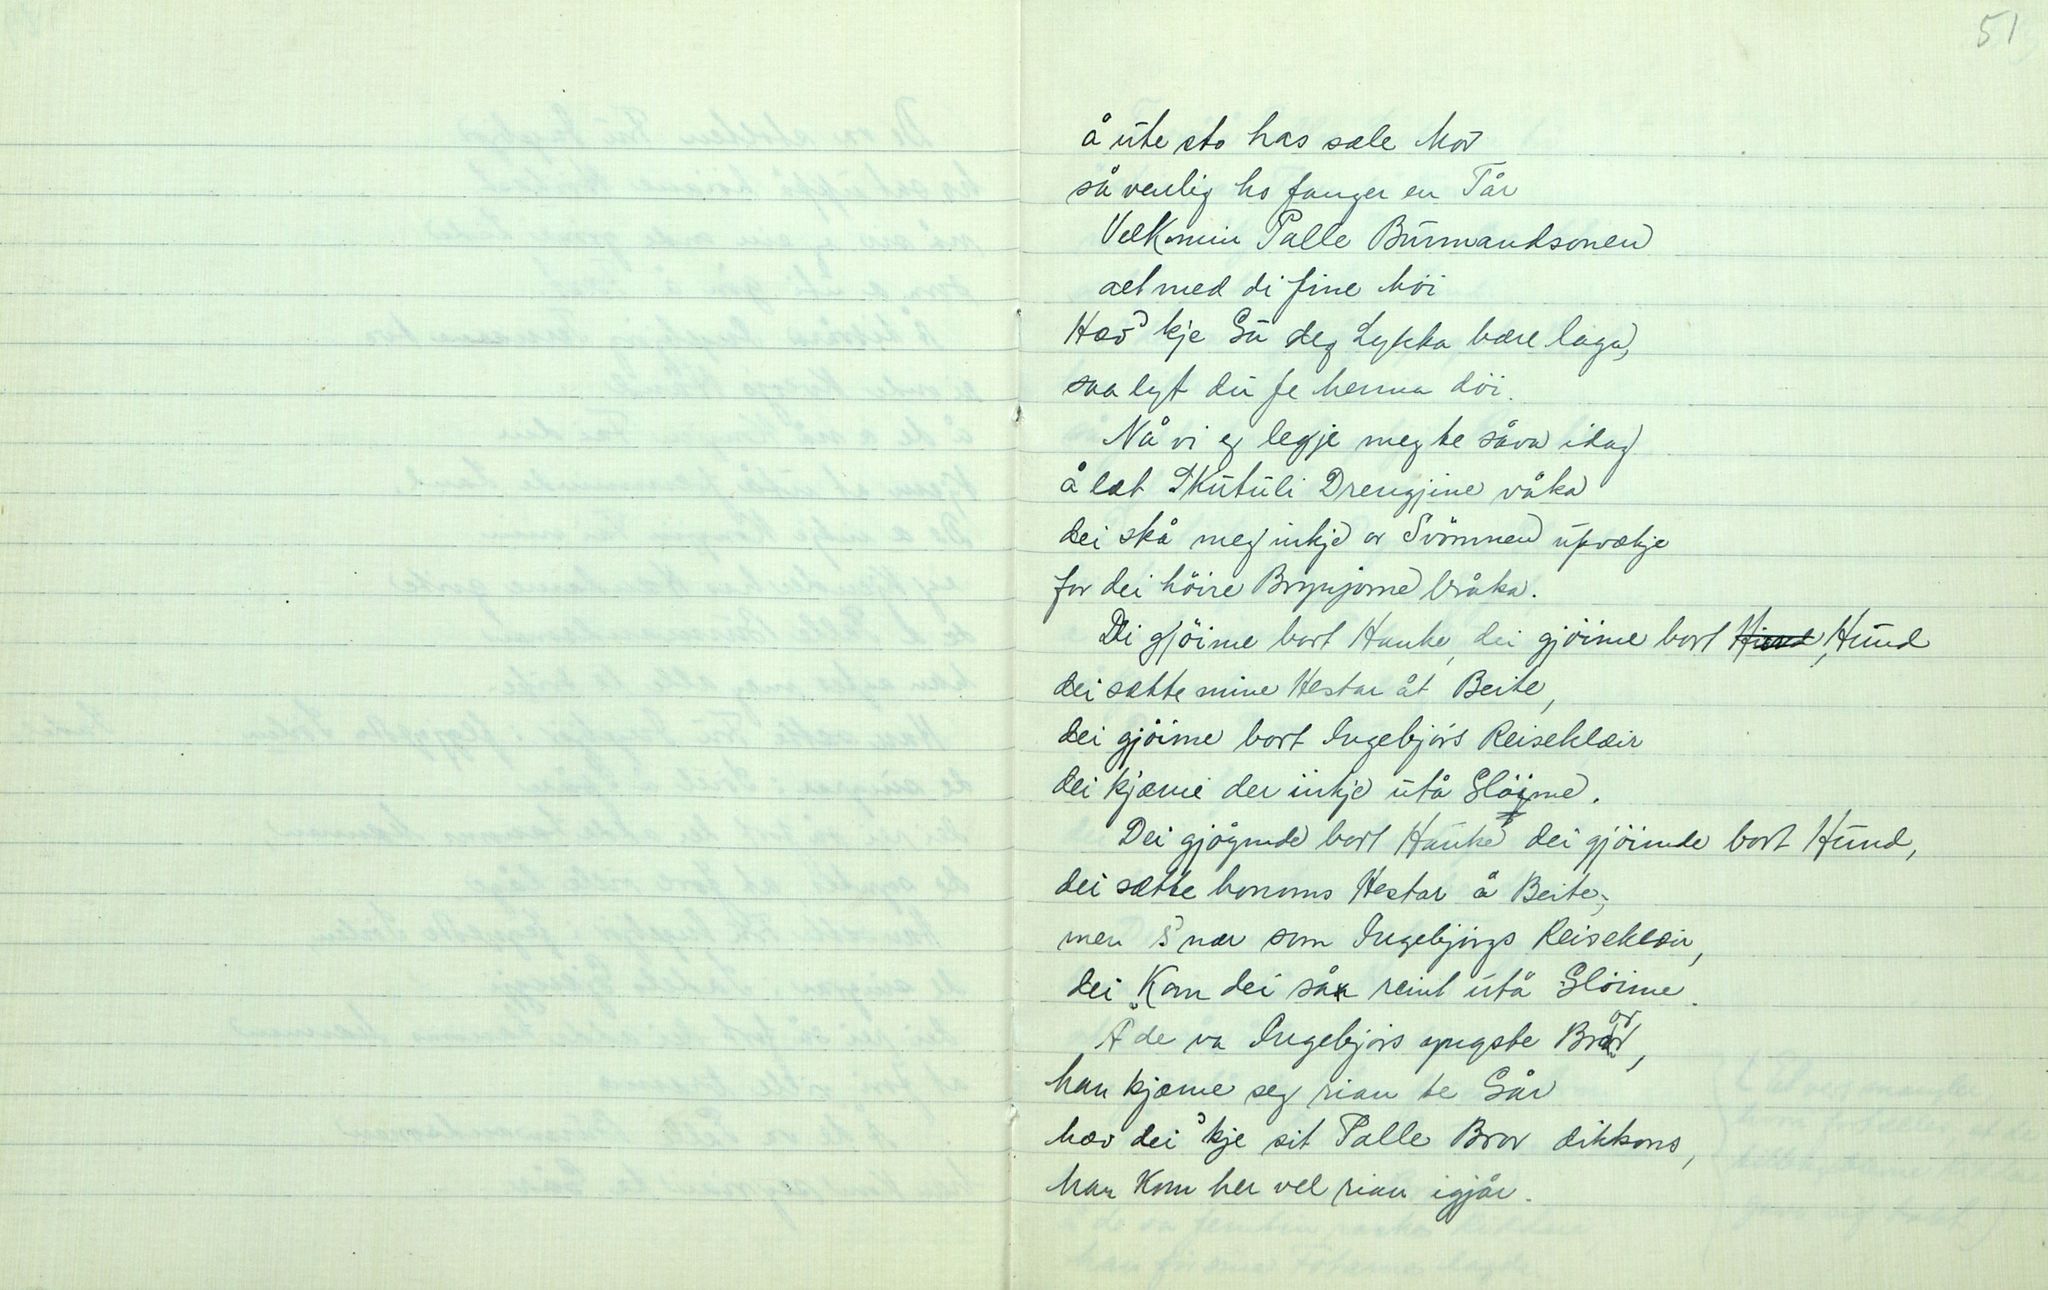 51
å ute sto has sæle Mor
så venlig ho fanger en Tår
Velkomin Palle Burmandsonen
alt med di fine Möi
Hæv' kje Gu deg Lykka bære laga,
saa lyt du fe henna döi.
Nå vi eg legje meg te såva idag
å læt Skutuli Drengjine våka
dei skå meg inkje or Svömnen upvækje
for dei höire Brynjorne bråka.
Di gjöime bort Hauke, dei gjöime bort Hund
dei sætte mine Hestar åt Beite,
dei gjöime bort Ingebjórs Reiseklæir
dei kjæme der inkje utå Glöime.
Dei gjöymde bort Hauke dei gjöimde bort Hund,
dei sætte honoms Hestar å Beite,
men nær som Ingebjörgs Reiseklæir,
dei Kom dei så reint utå Glöime.
Å de va Ingebjórs yngste Bror,
han kjæme seg rian te Går
hæv dei 'kje sit Palle Bror dikkons,
han Kom her vel rian igjår.